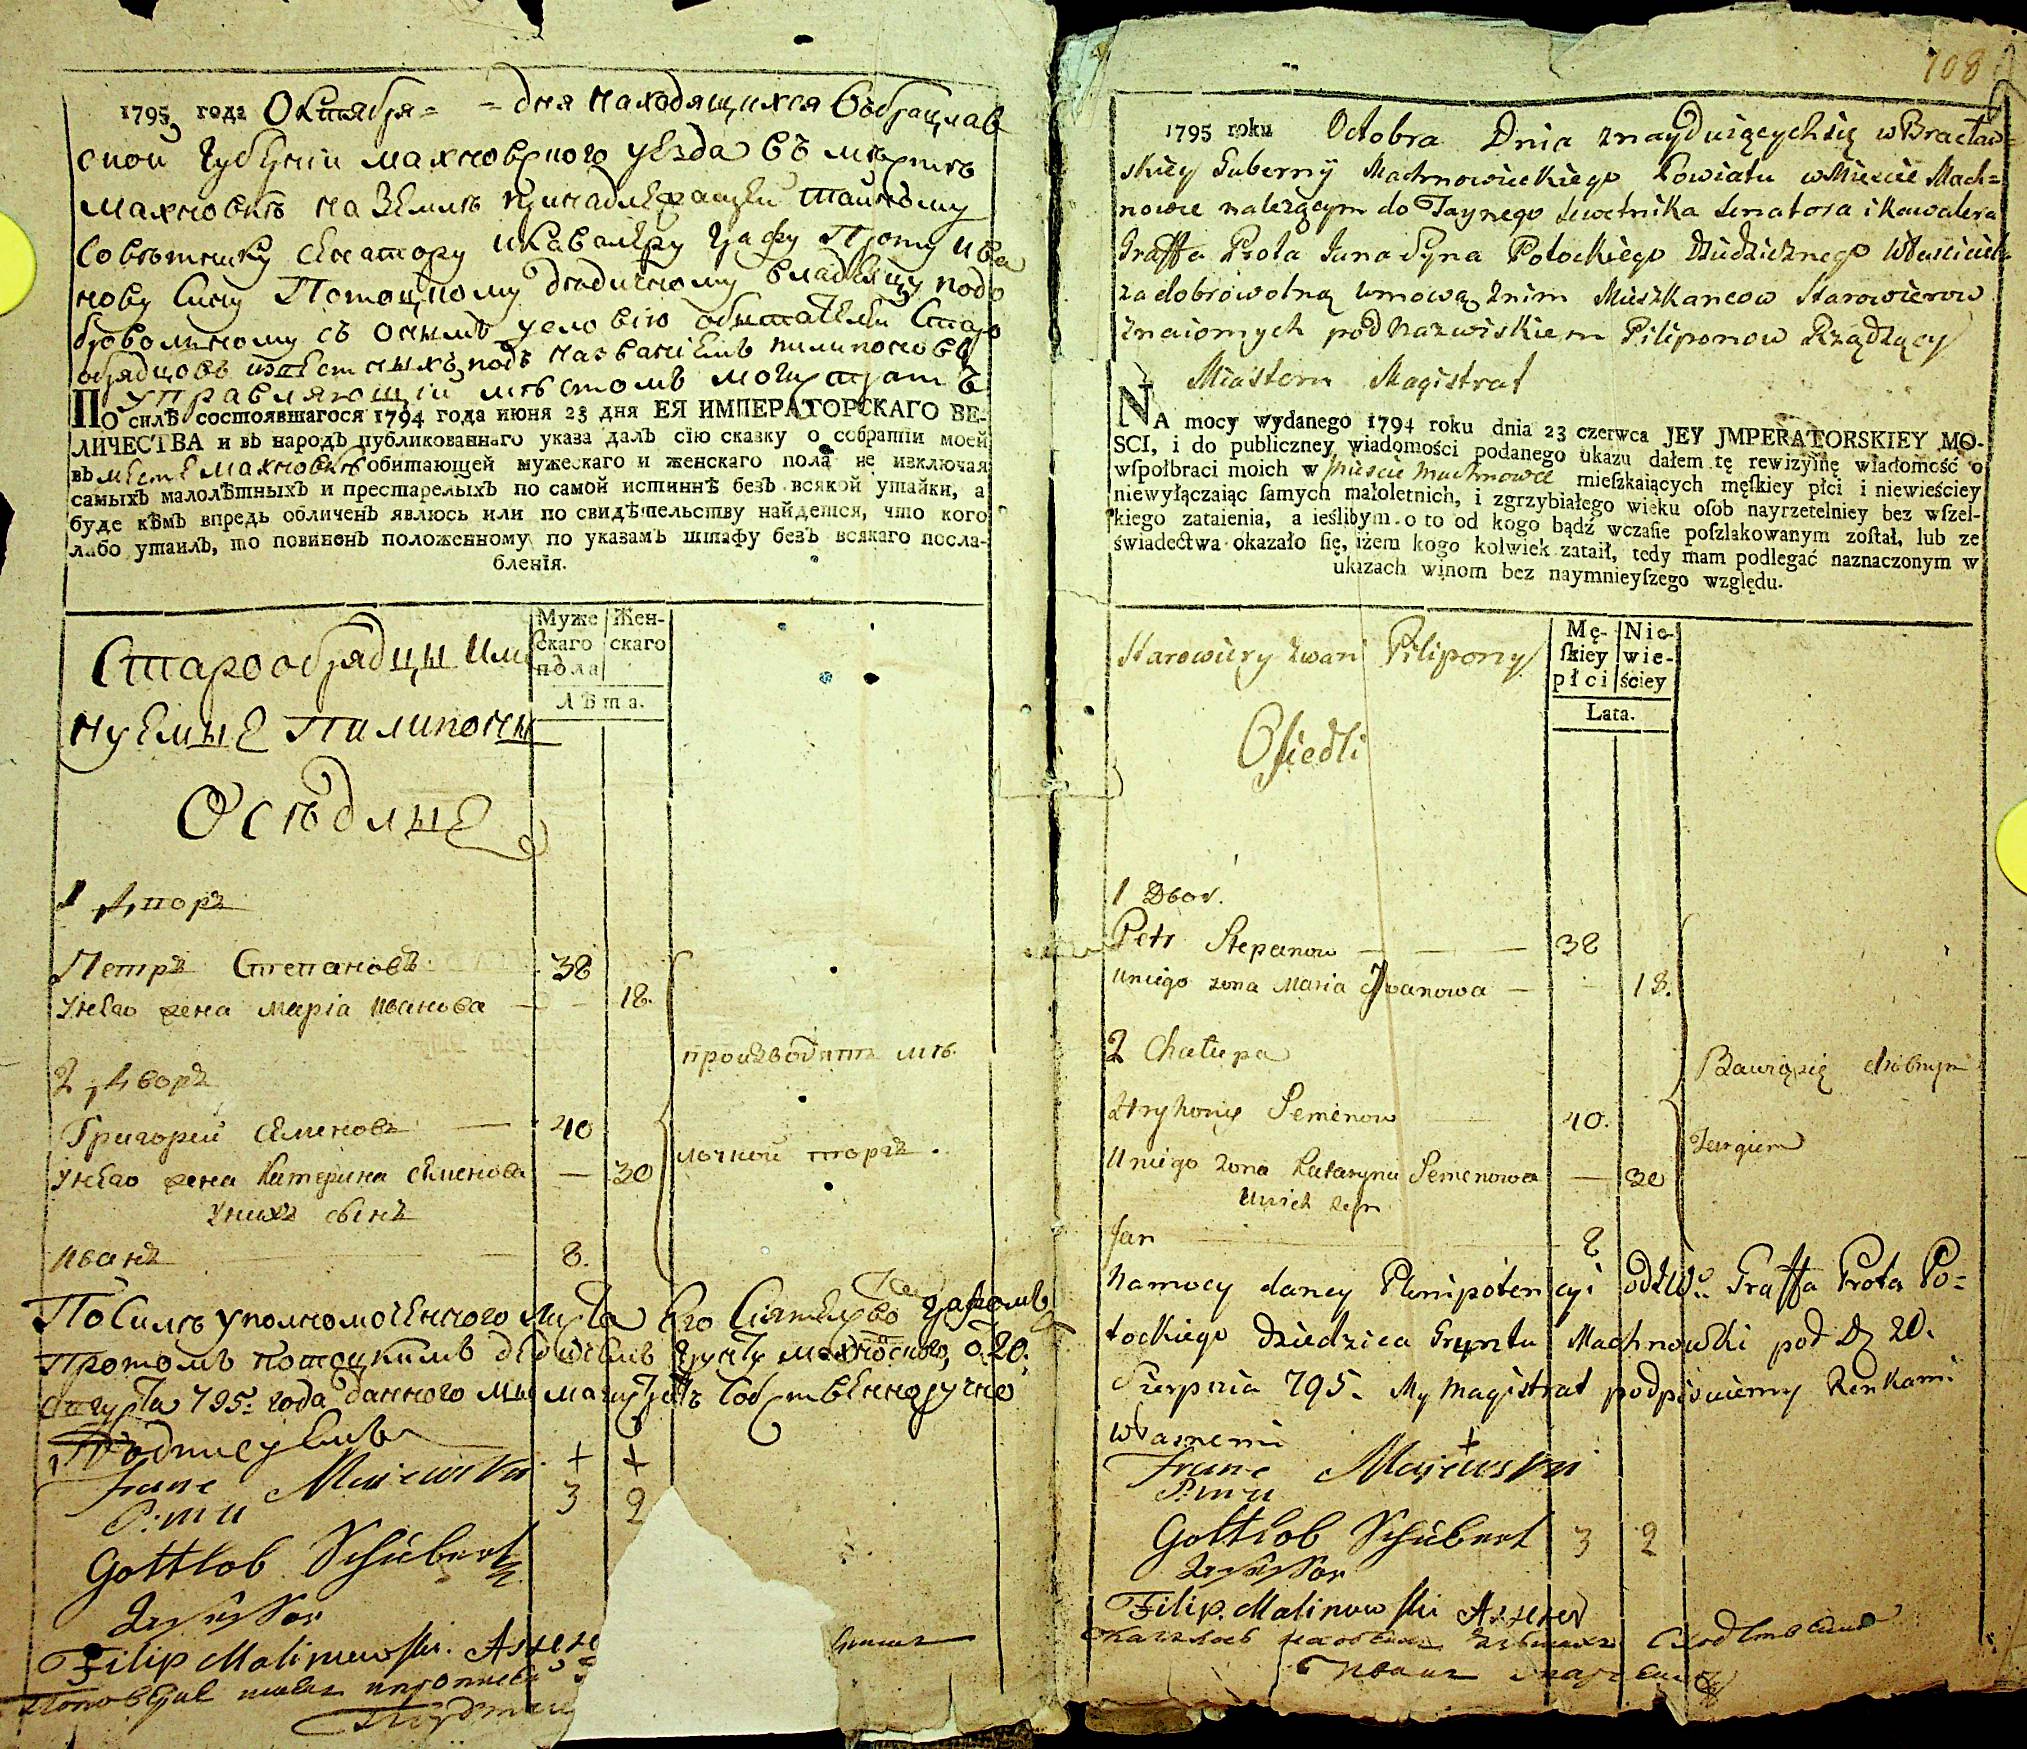 1795 года Октября = = дня находящихся Вбрацлав
ской губернии махновского уезда въ месте
махновке на земле принадлежащей тайному
Советнику Сенатору и кавалеру графу Проту Ива
нову Сину Потоцкому дедичному владельцу подо
бровольному съ онымъ условию обитателей Старо
обрядцовъ известныхъ подъ названиемъ пилипоновъ
Управляющий местомъ магистратъ
ПО силѣ состоявшагося 1794 года июня 23 дня ЕЯ ИМПЕРАТОРСКАГО ВЕ-
ЛИЧЕСТВА и въ народъ публикованнаго указа далъ сію сказку о собратіи моей
въ месте махновке обитающей мужескаго и женскаго пола не изключая
самыхъ малолѣтныхъ и престарелыхъ по самой истиннѣ безъ всякой утайки, а
буде кѣмъ впредь обличенъ явлюсь или по свидѣтельству найдется, что кого
либо утаилъ, то повиненъ положенному по указамъ штрафу безъ всякаго посла-
бленія.
Муже Жен-
скаго скаго
пола
Лѣта.
Старообрядцы име
нуемые Пилипоны
Осѣдлые
1 Дворъ
Петръ Степановъ 38
Унево жена Марія Иванова — 18.
2 Дворъ
производятъ ме-
Григорей Семеновъ — 40
лочной торгъ.
Унево жена Катерина Семенова — 30
Унихъ сынъ
Иванъ — 8.
По Силе уполномоченного листа Его Сиятельства Графомъ
Протомъ Потоцкимъ дедичемъ грунту махновского, о 20.
Августа 795. года данного мы магистратъ собственноручно
Подписуемъ
Franc Majewski + +
P: m M 3 2
Gottlob Schubert
Assessor
Filip Malinowski. Assese
708
1795 roku Octobra Dnia znayduiących się w Bracław=
skiey Gubernÿ Machnowieckiego Powiatu w Mieście Mach=
nowce należącym do Taynego Sowetnika Senatora i Kawalera
Graffa Prota Jana Syna Potockiego Dziedzicznego Właściciel
za dobrowolną umową z nim Mieszkancow Starowierow
znaiomych pod nazwiskiem Piliponow Rządzący
Miastem Magistrat
NA mocy wydanego 1794 roku dnia 23 czerwca JEY JMPERATORSKIEY MO-
SCI, i do publiczney wiadomości podanego ukazu dałem tę rewizyinę wiadomość o
wſpołbraci moich w Mieście Machnowce mieſzkaiących męſkiey płci i niewieściey
niewyłączaiąc ſamych małoletnich, i zgrzybiałego wieku oſob nayrzetelniey bez wſzel-
kiego zataienia, a ieślibym o to od kogo bądź wczaſie poſzlakowanym zoſtał, lub ze
świadectwa okazało ſię, iżem kogo kolwiek zataił, tedy mam podlegać naznaczonym w
ukazach winom bez naymnieyſzego względu.
Mę- Nie-
ſkiey wie-
płci ściey
Lata.
Starowiery zwani Pilipony
Osiedli
1 Dwor.
Petr Stepanow — — — 38
U niego zona Maria Jwanowa — 18.
2 Chałupa
Bawią się drobnym
Hryhory Semenow 40.
Targiem
U niego zona Kataryna Semenowa — 30
U nich Syn
Jan 8
Na mocy daney Plenipotencyi od JW. Graffa Prota Po=
tockiego dziedzica Gruntu Machnowski pod D 20.
Sierpnia 795. My Magistrat podpisuiemy Renkami
własnemi +
Franc Majewski
P: m M
Gottlob Schubert 3 2
Assessor
Filip. Malinowski Assesor